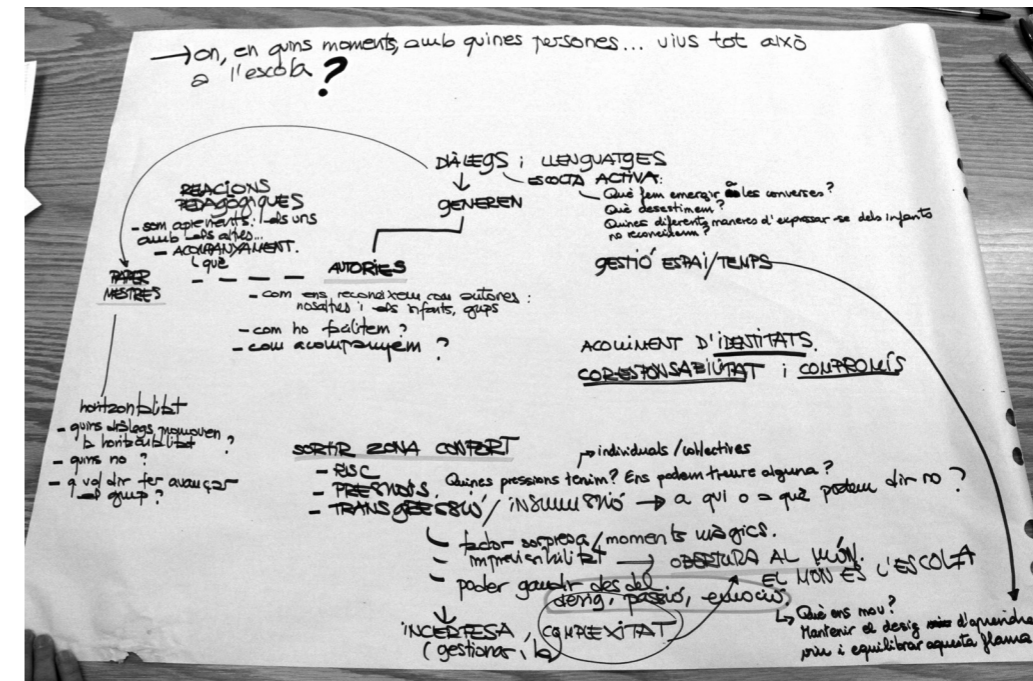 → on, en quins moments, amb quines persones... vius tot això
a l'escola?
DIÀLEGS i LLENGUATGES
ESCOLTA ACTIVA:
Què fem emergir a les converses?
Què desestimem?
Quines diferents maneres d'expressar-se dels infants
no reconeixem?
GENEREN
RELACIONS
PEDAGÒGIQUES
- som aprenents els uns
amb els altres...
- ACOMPANYAMENT.
què
PAPER
MESTRES
AUTORIES
- com ens reconeixem com autores:
nosaltres i els infants, grups
- com ho facilitem?
- com acompanyem?
GESTIÓ ESPAI/TEMPS
ACOLLIMENT D'IDENTITATS.
CORESPONSABILITAT i COMPROMÍS
horitzontalitat
- quins diàlegs promouen
la horitzontalitat?
- quins no?
- q vol dir fer avançar
el grup?
SORTIR ZONA CONFORT
→ individuals/col·lectives
- RISC
Quines pressions tenim? Ens podem treure alguna?
- PRESSIONS.
- TRANSGRESSIÓ / INSUMISSIÓ → a qui o a què podem dir no?
- factor sorpresa/moments màgics.
- imprevisibilitat → OBERTURA AL MÓN.
EL MÓN ÉS L'ESCOLA
- poder gaudir des del
desig, passió, emoció.
Què ens mou?
Mantenir el desig d'aprendre
viu i equilibrar aquesta flama
INCERTESA, COMPLEXITAT
(gestionar-la)